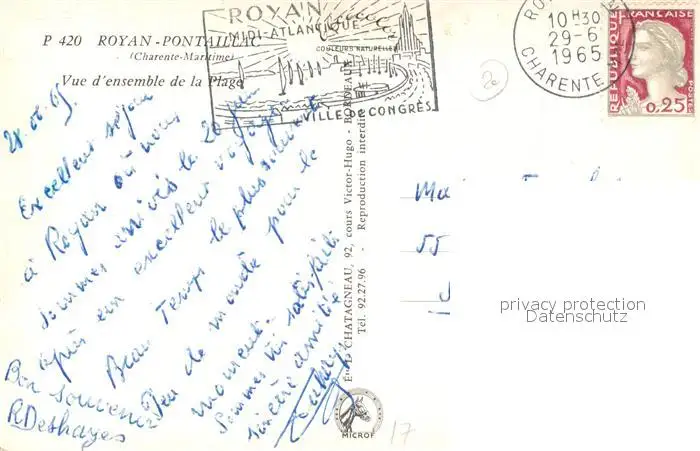 P 420 ROYAN-PONTAILLAC
(Charente-Maritime)
Vue d'ensemble de la Plage
ROYAN
MIDI-ATLANTIQUE
COULEURS NATURELLES
VILLE DE CONGRÈS
10H30
29-6
1965
CHARENTE
REPUBLIQUE FRANÇAISE
POSTES
0,25F
28.06.65
Excellent séjour
à Royan où nous
sommes arrivés le 20 juin
après un excellent voyage
Beau Temps le plus souvent
Peu de monde pour le
moment.
Sommes très satisfaits
sincère amitié
Bon souvenir
R Deshayes
CHATAGNEAU, 92, cours Victor-Hugo - BORDEAUX
Tél. 92.27.96 - Reproduction interdite
MICROF
55
privacy protection
Datenschutz
17